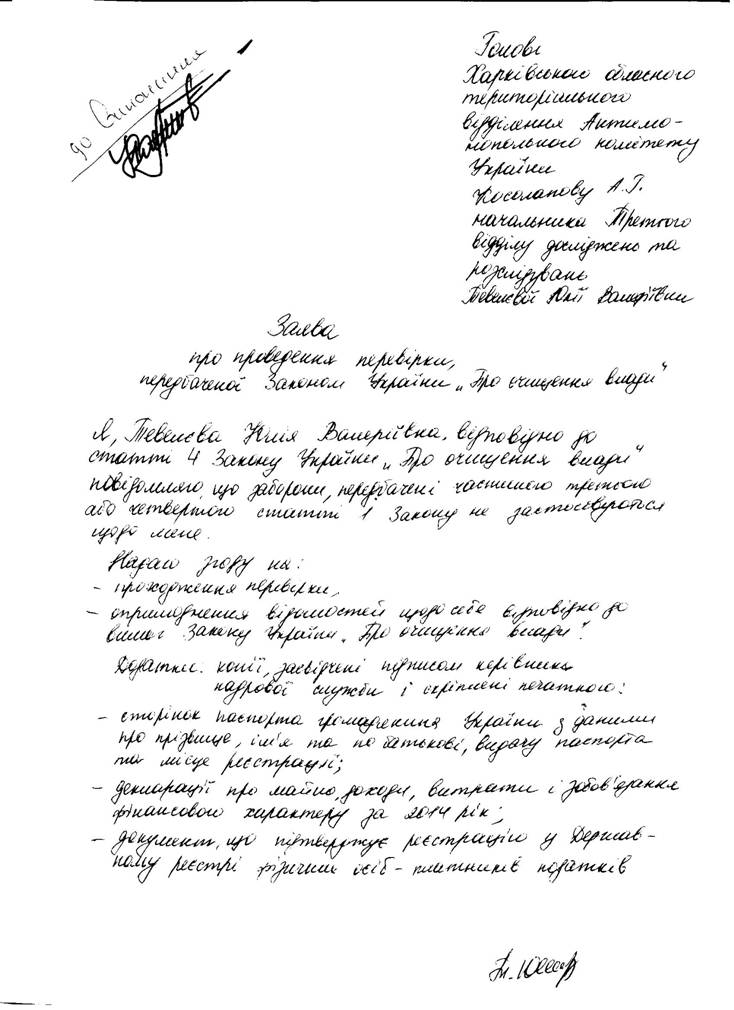 до
Голові
Харківського обласного
територіального
відділення Антимо-
нопольного комітету
України
Косолапову А.Г.
начальника Третього
відділу досліджень та
розслідувань
Тевелєвої Юлії Валеріївни
Заява
про проведення перевірки,
передбаченої Законом України „Про очищення влади"
Я, Тевелєва Юлія Валеріївна, відповідно до
статті 4 Закону України „Про очищення влади"
повідомляю, що заборони, передбачені частиною третьою
або четвертою статті 1 Закону не застосовуються
щодо мене.
Надаю згоду на:
- проходження перевірки,
- оприлюднення відомостей щодо себе відповідно до
вимог Закону України „Про очищення влади".
Додатки: копії, засвідчені підписом керівника
кадрової служби і скріплені печаткою:
- сторінок паспорта громадянина України з даними
про прізвище, ім'я та по батькові, видачу паспорта
та місце реєстрації;
- декларації про майно, доходи, витрати і зобов'язання
фінансового характеру за 2014 рік;
- документ, що підтверджує реєстрацію у Держав-
ному реєстрі фізичних осіб - платників податків